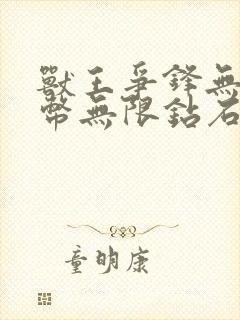 獸王爭鋒無
幣無限鉆石
童明康